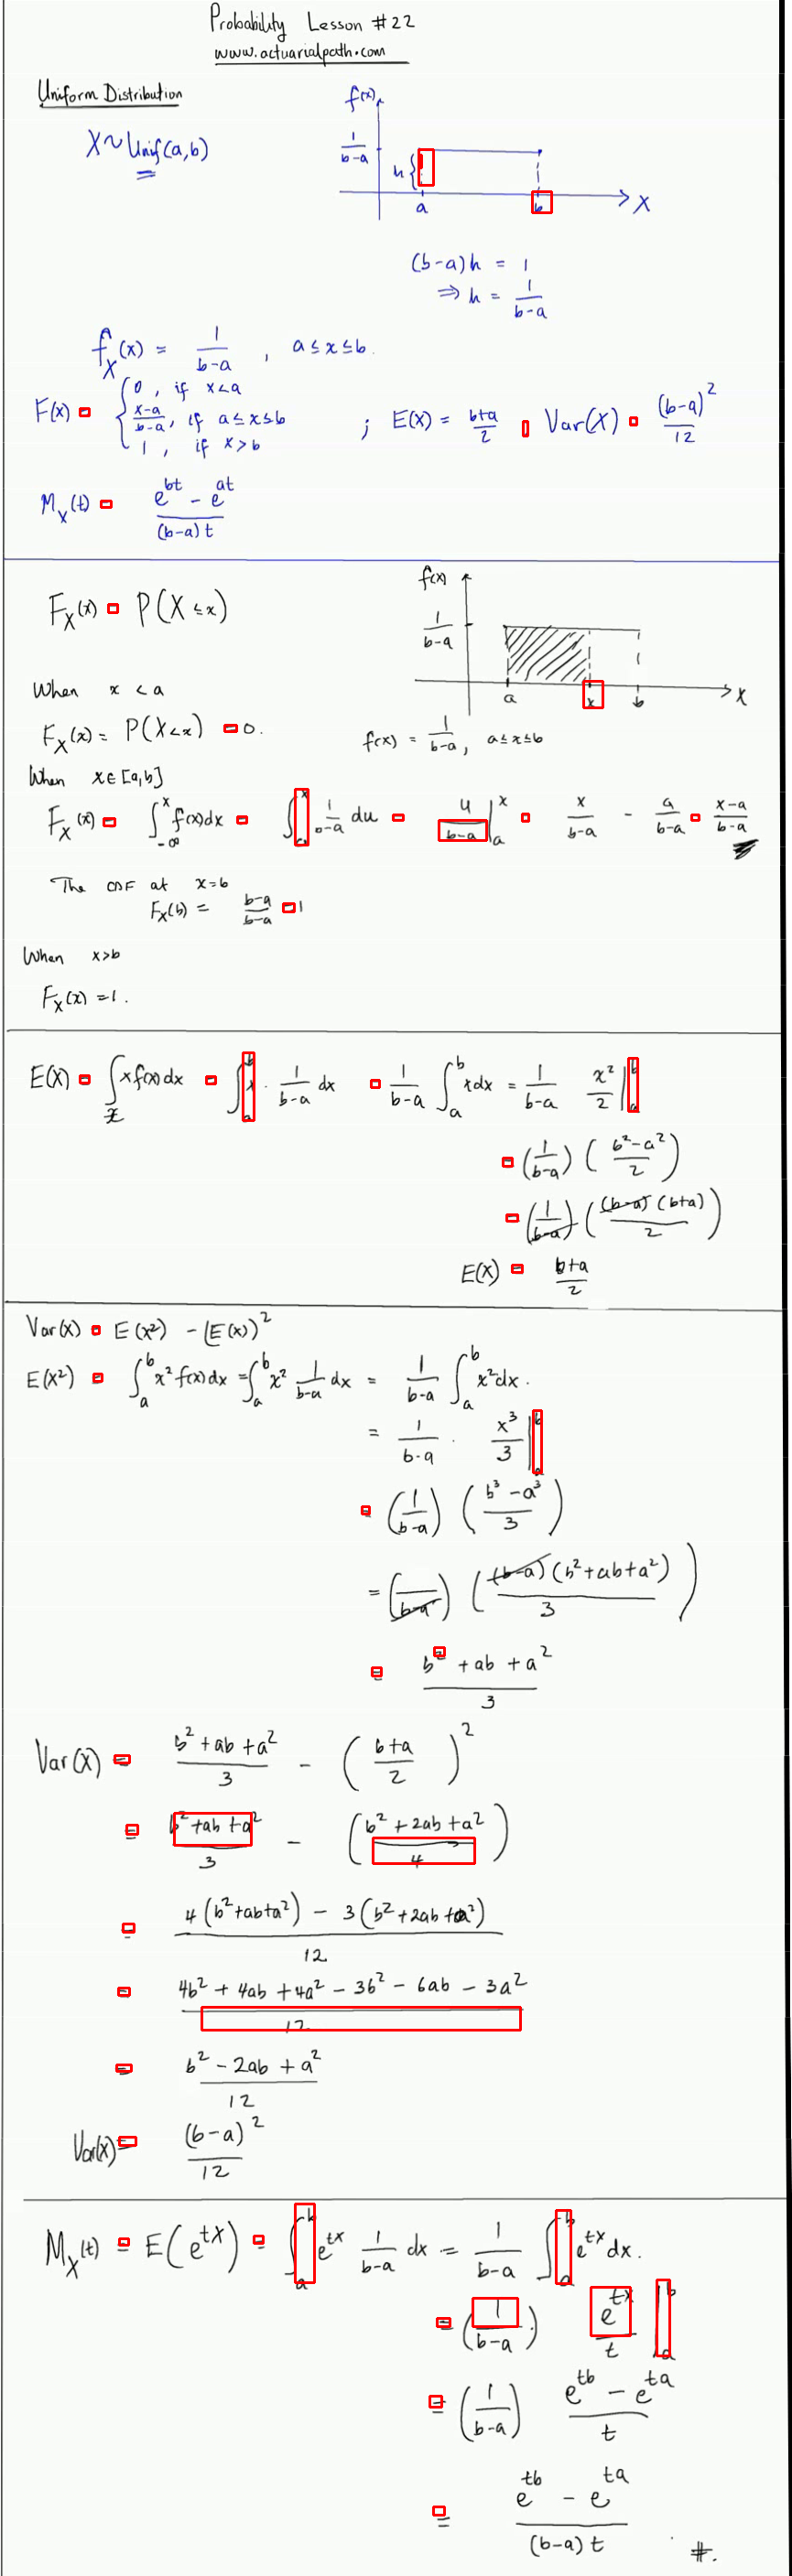 Probability Lesson #22
www.actuarialpath.com
Uniform Distribution
X ~ Unif(a,b)
f(x)
1/(b-a)
h
a b X
(b-a)h = 1
⇒ h = 1/(b-a)
f_X(x) = 1/(b-a) , a ≤ x ≤ b.
F(x) = { 0, if x < a
(x-a)/(b-a), if a ≤ x ≤ b
1, if x > b
; E(X) = (b+a)/2 , Var(X) = (b-a)^2/12
M_X(t) = (e^{bt} - e^{at})/((b-a)t)
F_X(x) = P(X ≤ x)
f(x)
1/(b-a)
a x b X
f(x) = 1/(b-a), a ≤ x ≤ b
When x < a
F_X(x) = P(X < x) = 0.
When x ∈ [a,b]
F_X(x) = ∫_{-∞}^{x} f(x)dx = ∫_a^x 1/(b-a) du = u/(b-a) |_a^x = x/(b-a) - a/(b-a) = (x-a)/(b-a)
The CDF at x=b
F_X(b) = (b-a)/(b-a) = 1
When x>b
F_X(x) = 1.
E(X) = ∫_x x f(x) dx = ∫_a^b x · 1/(b-a) dx = 1/(b-a) ∫_a^b x dx = 1/(b-a) x^2/2 |_a^b
= (1/(b-a)) ((b^2-a^2)/2)
= (1/(b-a)) ((b-a)(b+a)/2)
E(X) = (b+a)/2
Var(X) = E(X^2) - (E(X))^2
E(X^2) = ∫_a^b x^2 f(x) dx = ∫_a^b x^2 1/(b-a) dx = 1/(b-a) ∫_a^b x^2 dx.
= 1/(b-a) · x^3/3 |_a^b
= (1/(b-a)) ((b^3 - a^3)/3)
= (1/(b-a)) ((b-a)(b^2+ab+a^2)/3)
= (b^2 + ab + a^2)/3
Var(X) = (b^2 + ab + a^2)/3 - ((b+a)/2)^2
= (b^2 + ab + a^2)/3 - ((b^2 + 2ab + a^2)/4)
= (4(b^2+ab+a^2) - 3(b^2+2ab+a^2))/12
= (4b^2 + 4ab + 4a^2 - 3b^2 - 6ab - 3a^2)/12
= (b^2 - 2ab + a^2)/12
Var(x) = (b-a)^2/12
M_X(t) = E(e^{tX}) = ∫_a^b e^{tx} 1/(b-a) dx = 1/(b-a) ∫_a^b e^{tx} dx.
= (1/(b-a)) e^{tx}/t |_a^b
= (1/(b-a)) (e^{tb} - e^{ta})/t
= (e^{tb} - e^{ta})/((b-a)t) #.